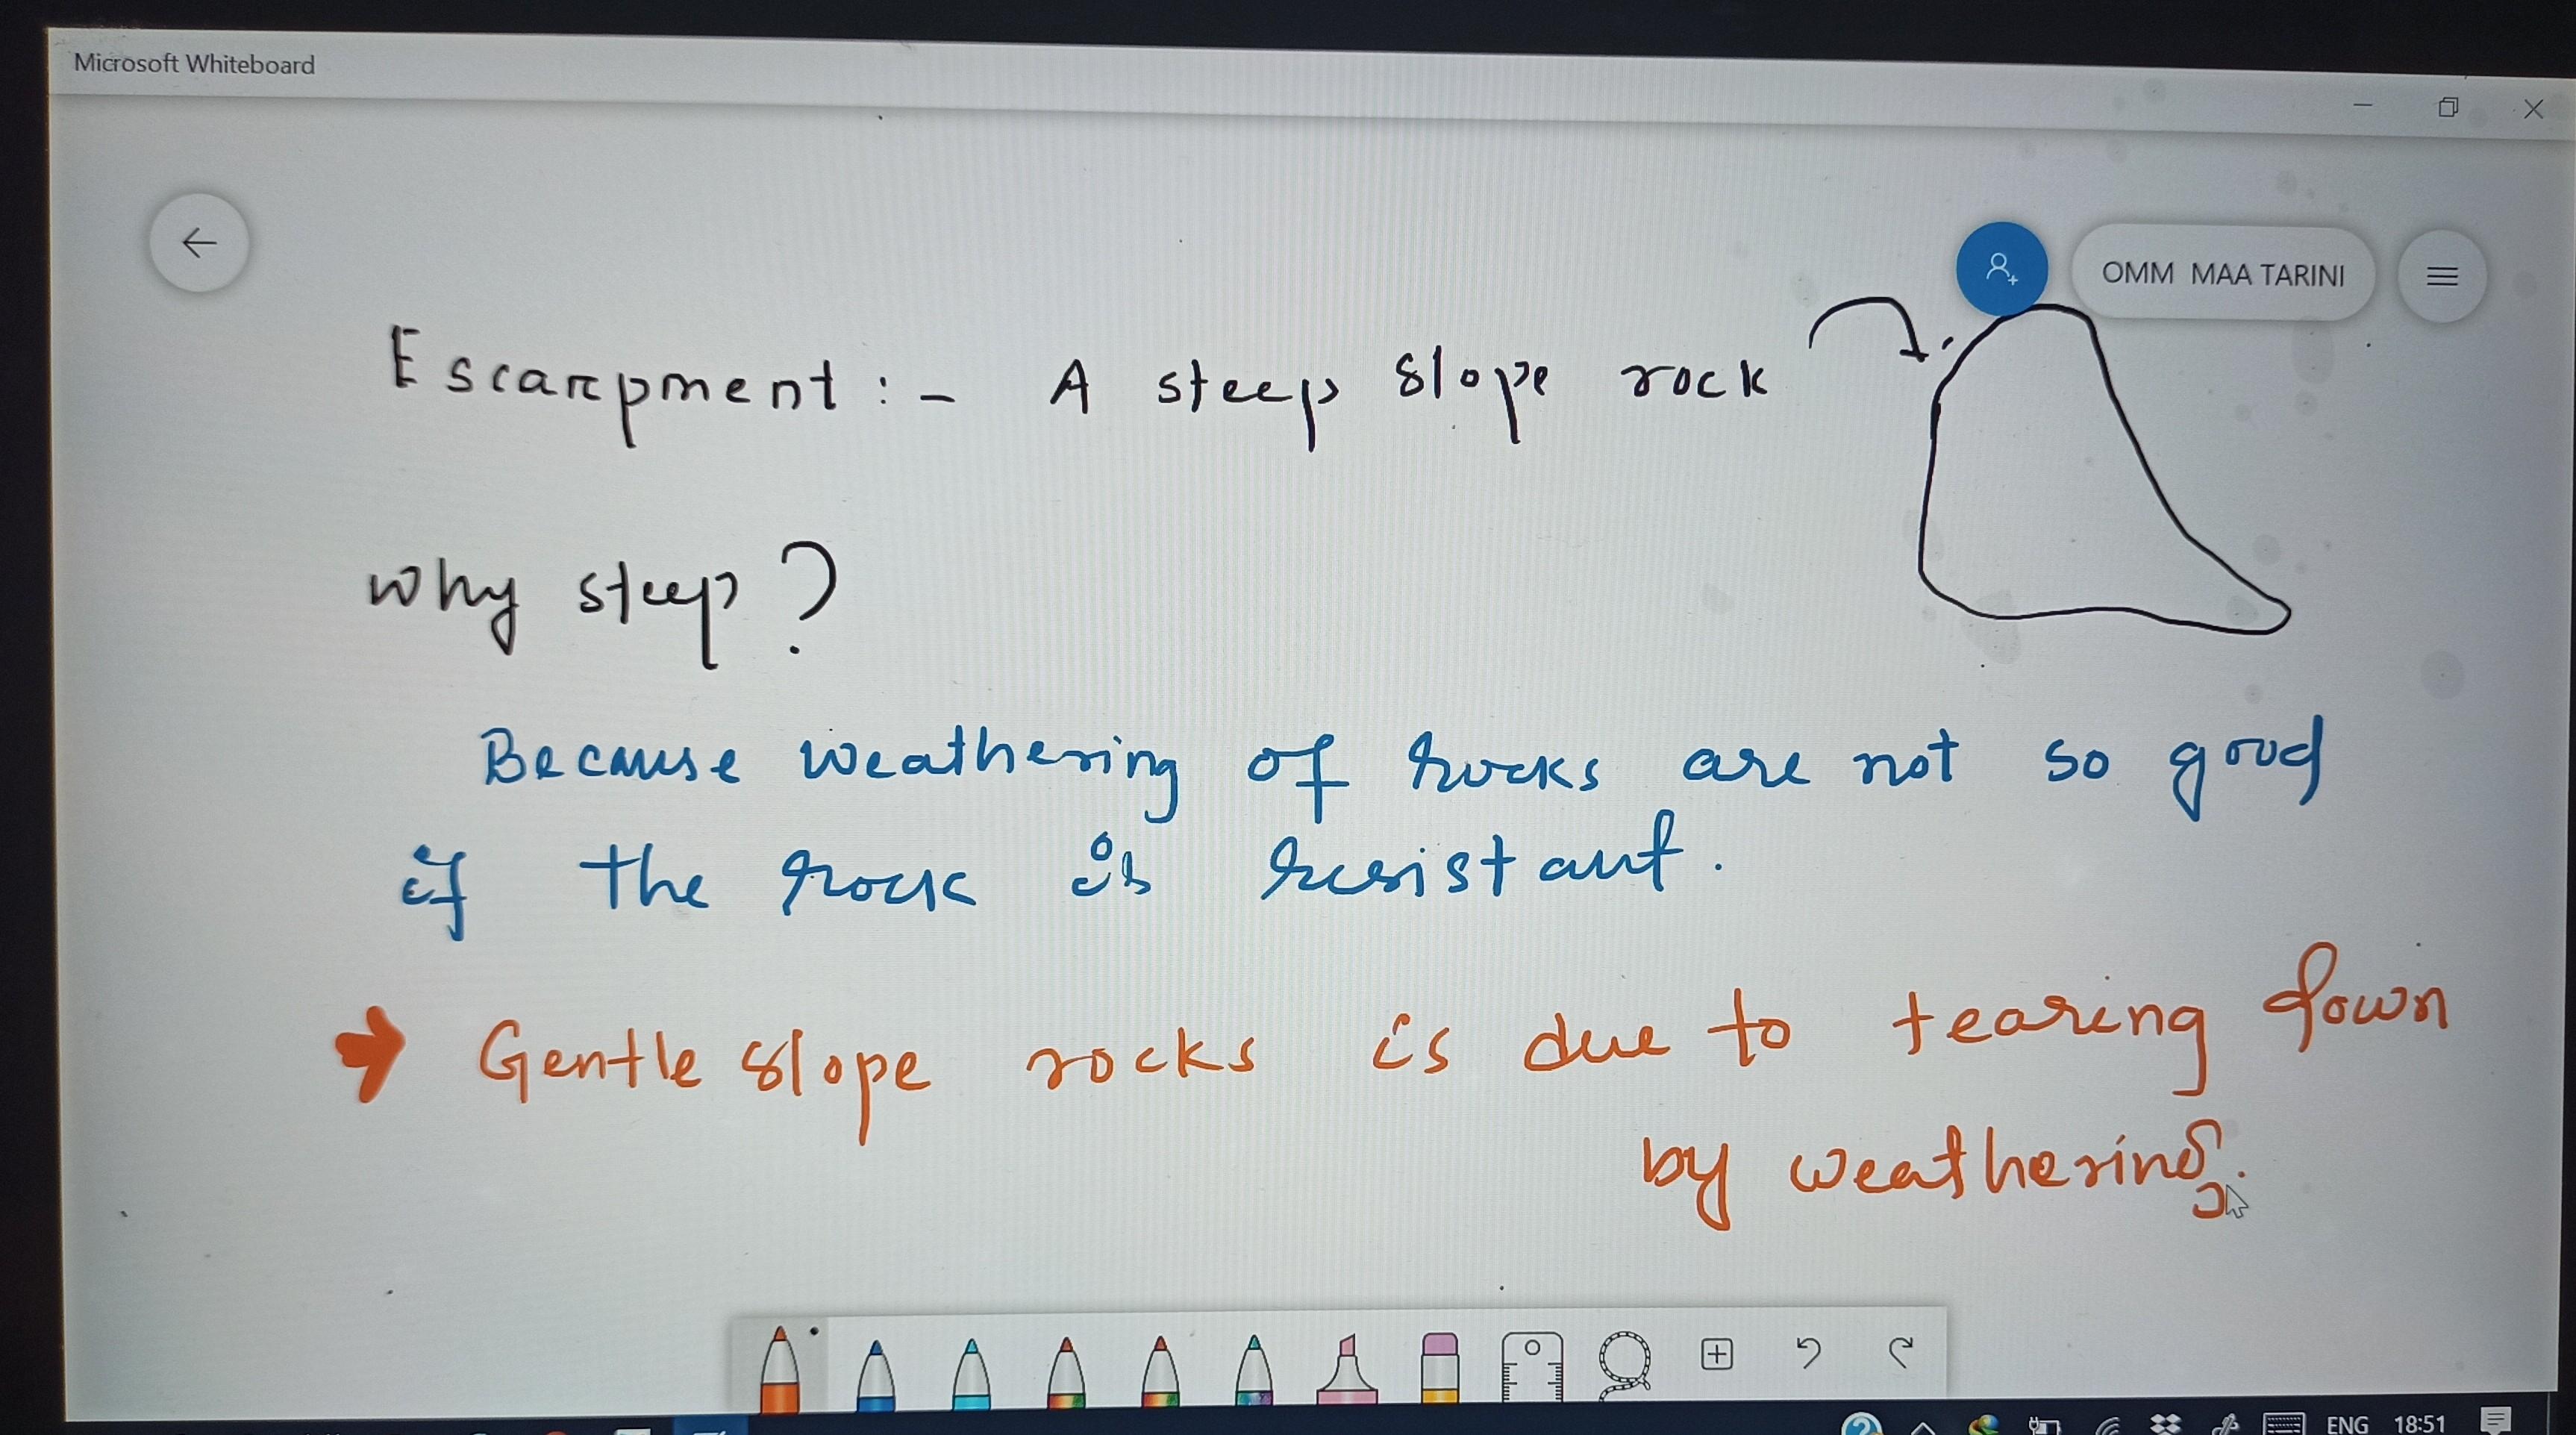 Microsoft Whiteboard
OMM MAA TARINI
Escarpment :- A steep slope rock
why steep?
Because weathering of rocks are not so good
if the rock is resistant.
Gentle slope rocks is due to tearing down
by weathering.
ENG 18:51